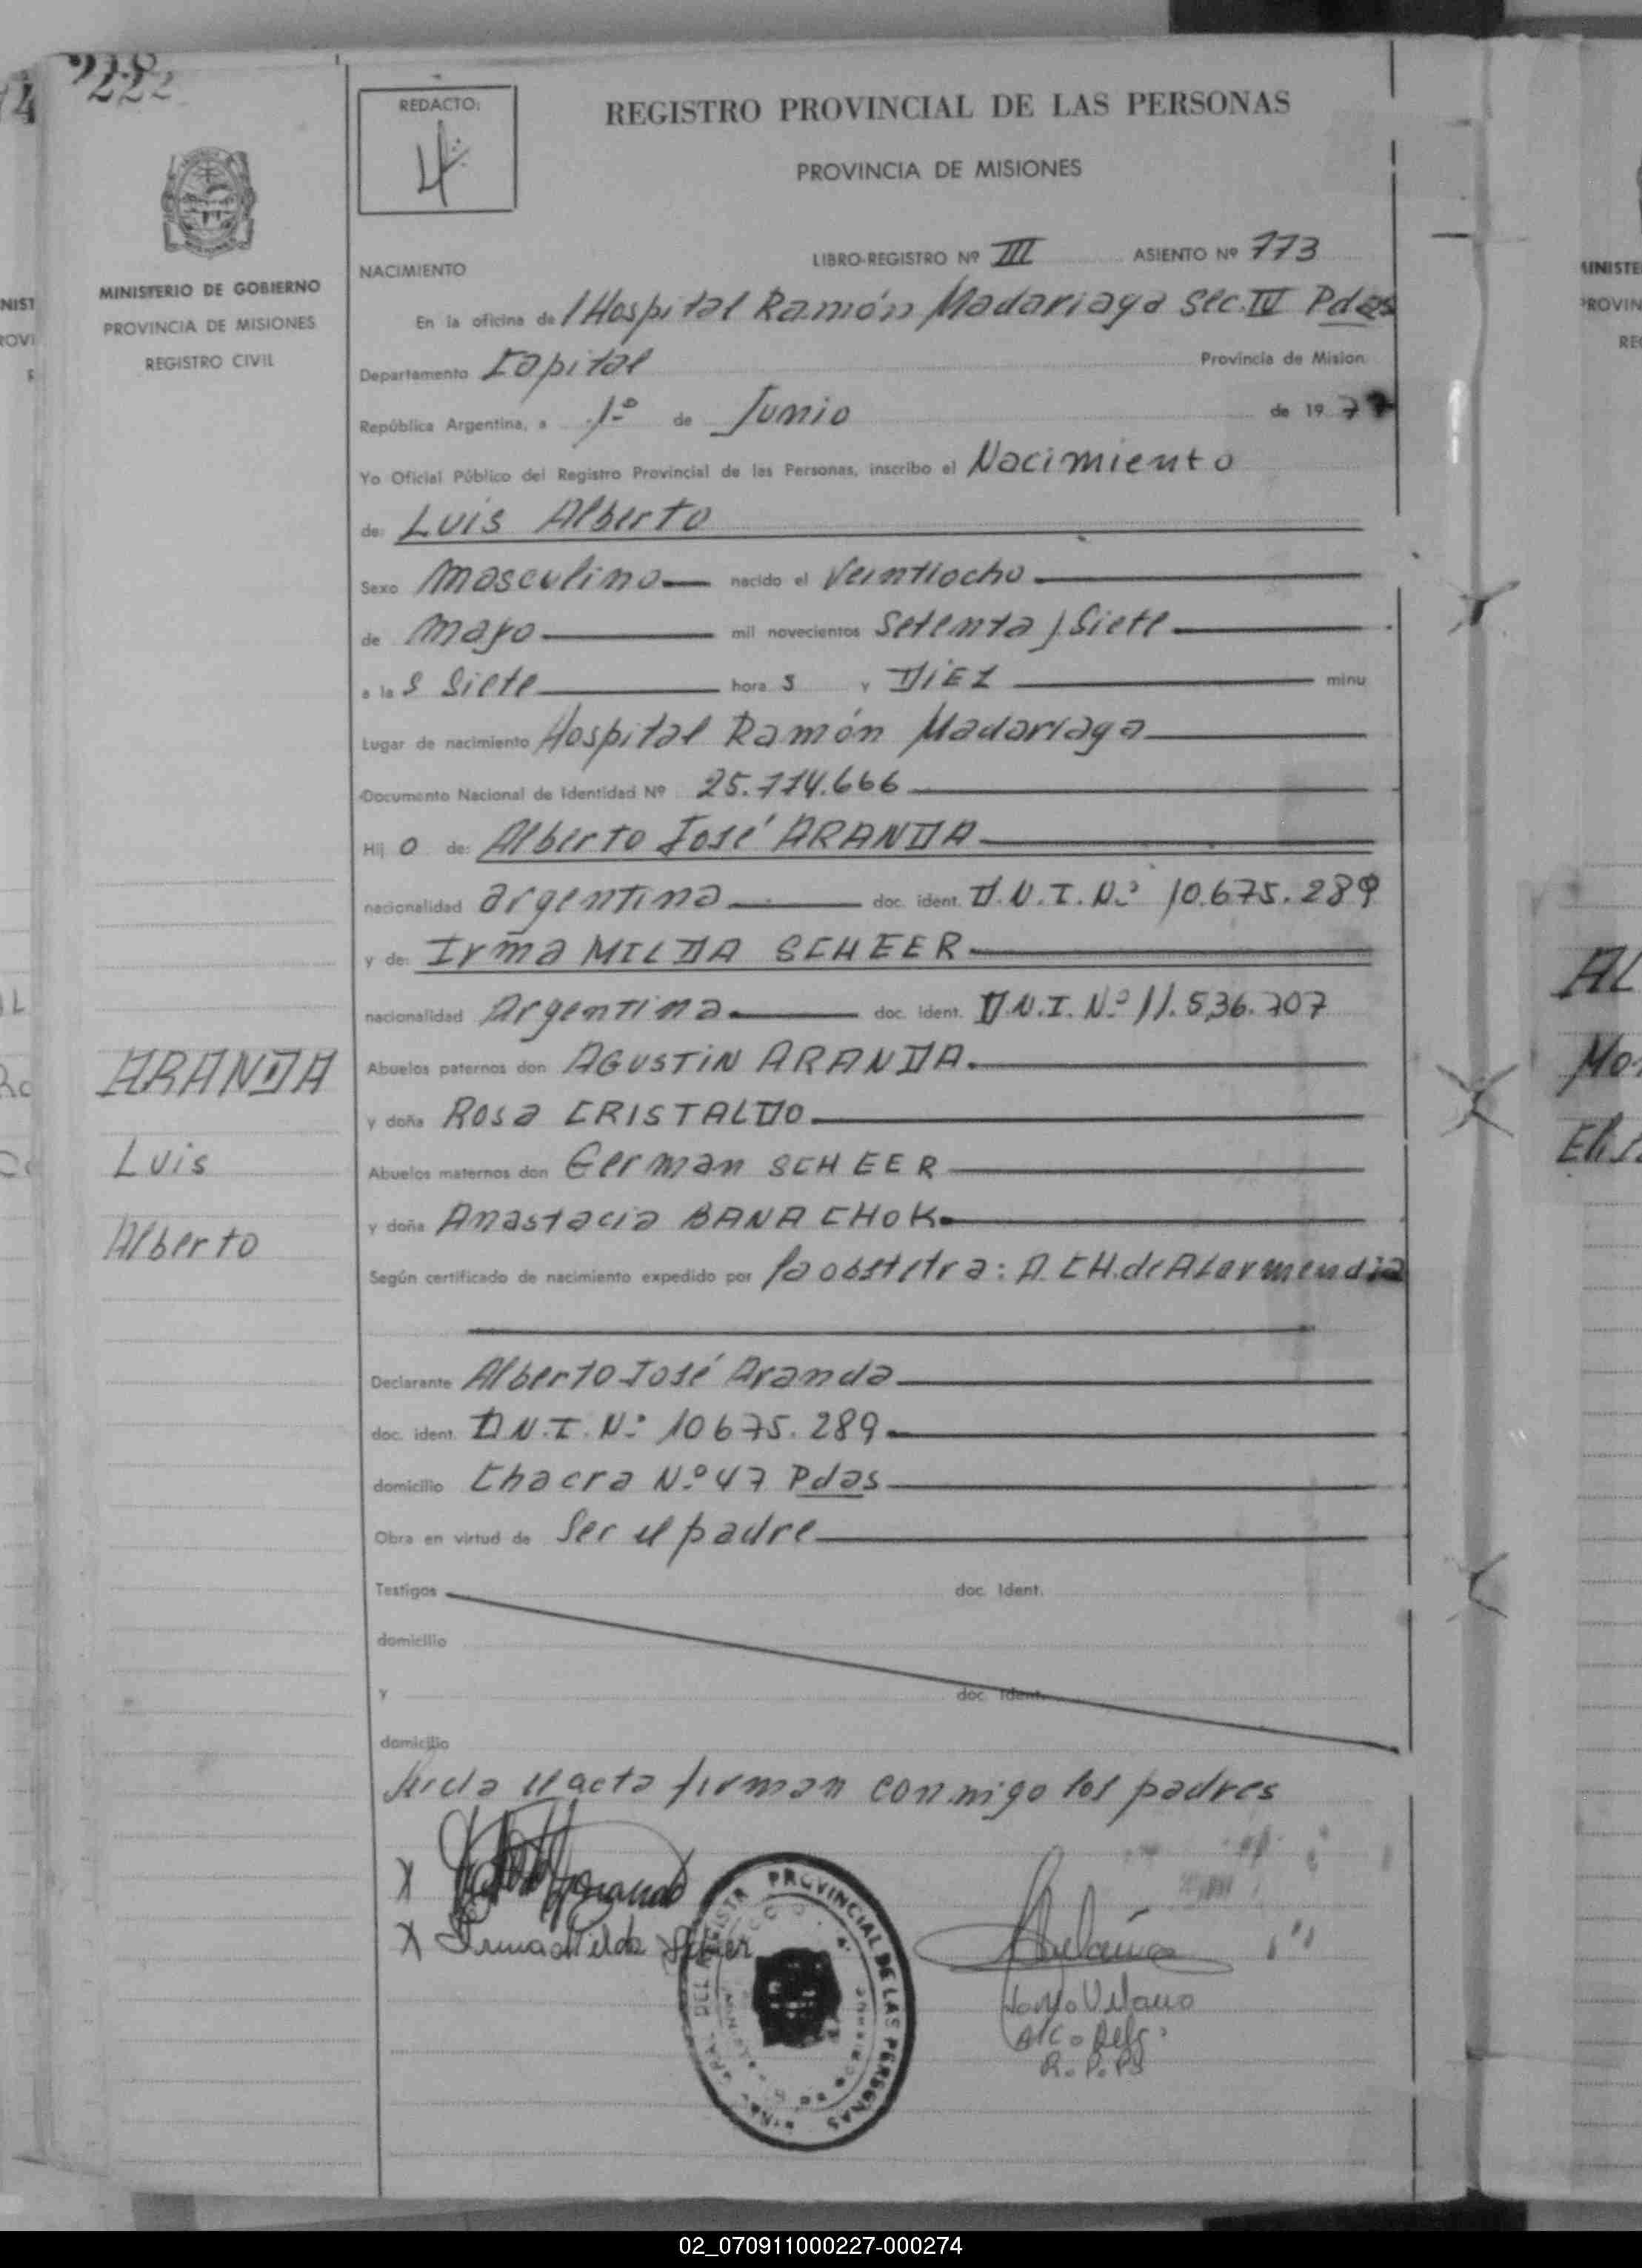 222
REDACTO:
4
REGISTRO PROVINCIAL DE LAS PERSONAS
PROVINCIA DE MISIONES
MINISTERIO DE GOBIERNO
PROVINCIA DE MISIONES
REGISTRO CIVIL
NACIMIENTO
LIBRO-REGISTRO Nº III ASIENTO Nº 773
En la oficina del Hospital Ramón Madariaga Sec. IV Pdas
Departamento Capital Provincia de Mision
República Argentina, a 1º de Junio de 1977
Yo Oficial Público del Registro Provincial de las Personas, inscribo el Nacimiento
de: Luis Alberto
Sexo masculino nacido el Veintiocho
de mayo mil novecientos Setenta y Siete
a las Siete horas y DIEZ minu
Lugar de nacimiento Hospital Ramón Madariaga
Documento Nacional de Identidad Nº 25.774.666
Hijo de: Alberto José ARANDA
nacionalidad argentina doc. ident. D.N.I. Nº 10.675.289
y de: Irma MILDA SCHEER
nacionalidad Argentina doc. ident. D.N.I. Nº 11.536.707
Abuelos paternos don AGUSTIN ARANDA.
y doña Rosa CRISTALDO
Abuelos maternos don German SCHEER
y doña Anastacia BANACHOK
ARANDA
Luis
Alberto
Según certificado de nacimiento expedido por la obstetra: A. CH. de
Declarante Alberto José Aranda
doc. ident. D.N.I. Nº 10675.289
domicilio Chacra Nº 47 Pdas
Obra en virtud de Ser el padre
Testigos doc. Ident.
domicilio
y doc. Ident.
domicilio
leida el acta firman conmigo los padres
X
X Irma Milda Scheer
PROVINCIAL DE LAS PERSONAS
R.P.PS
02_070911000227-000274